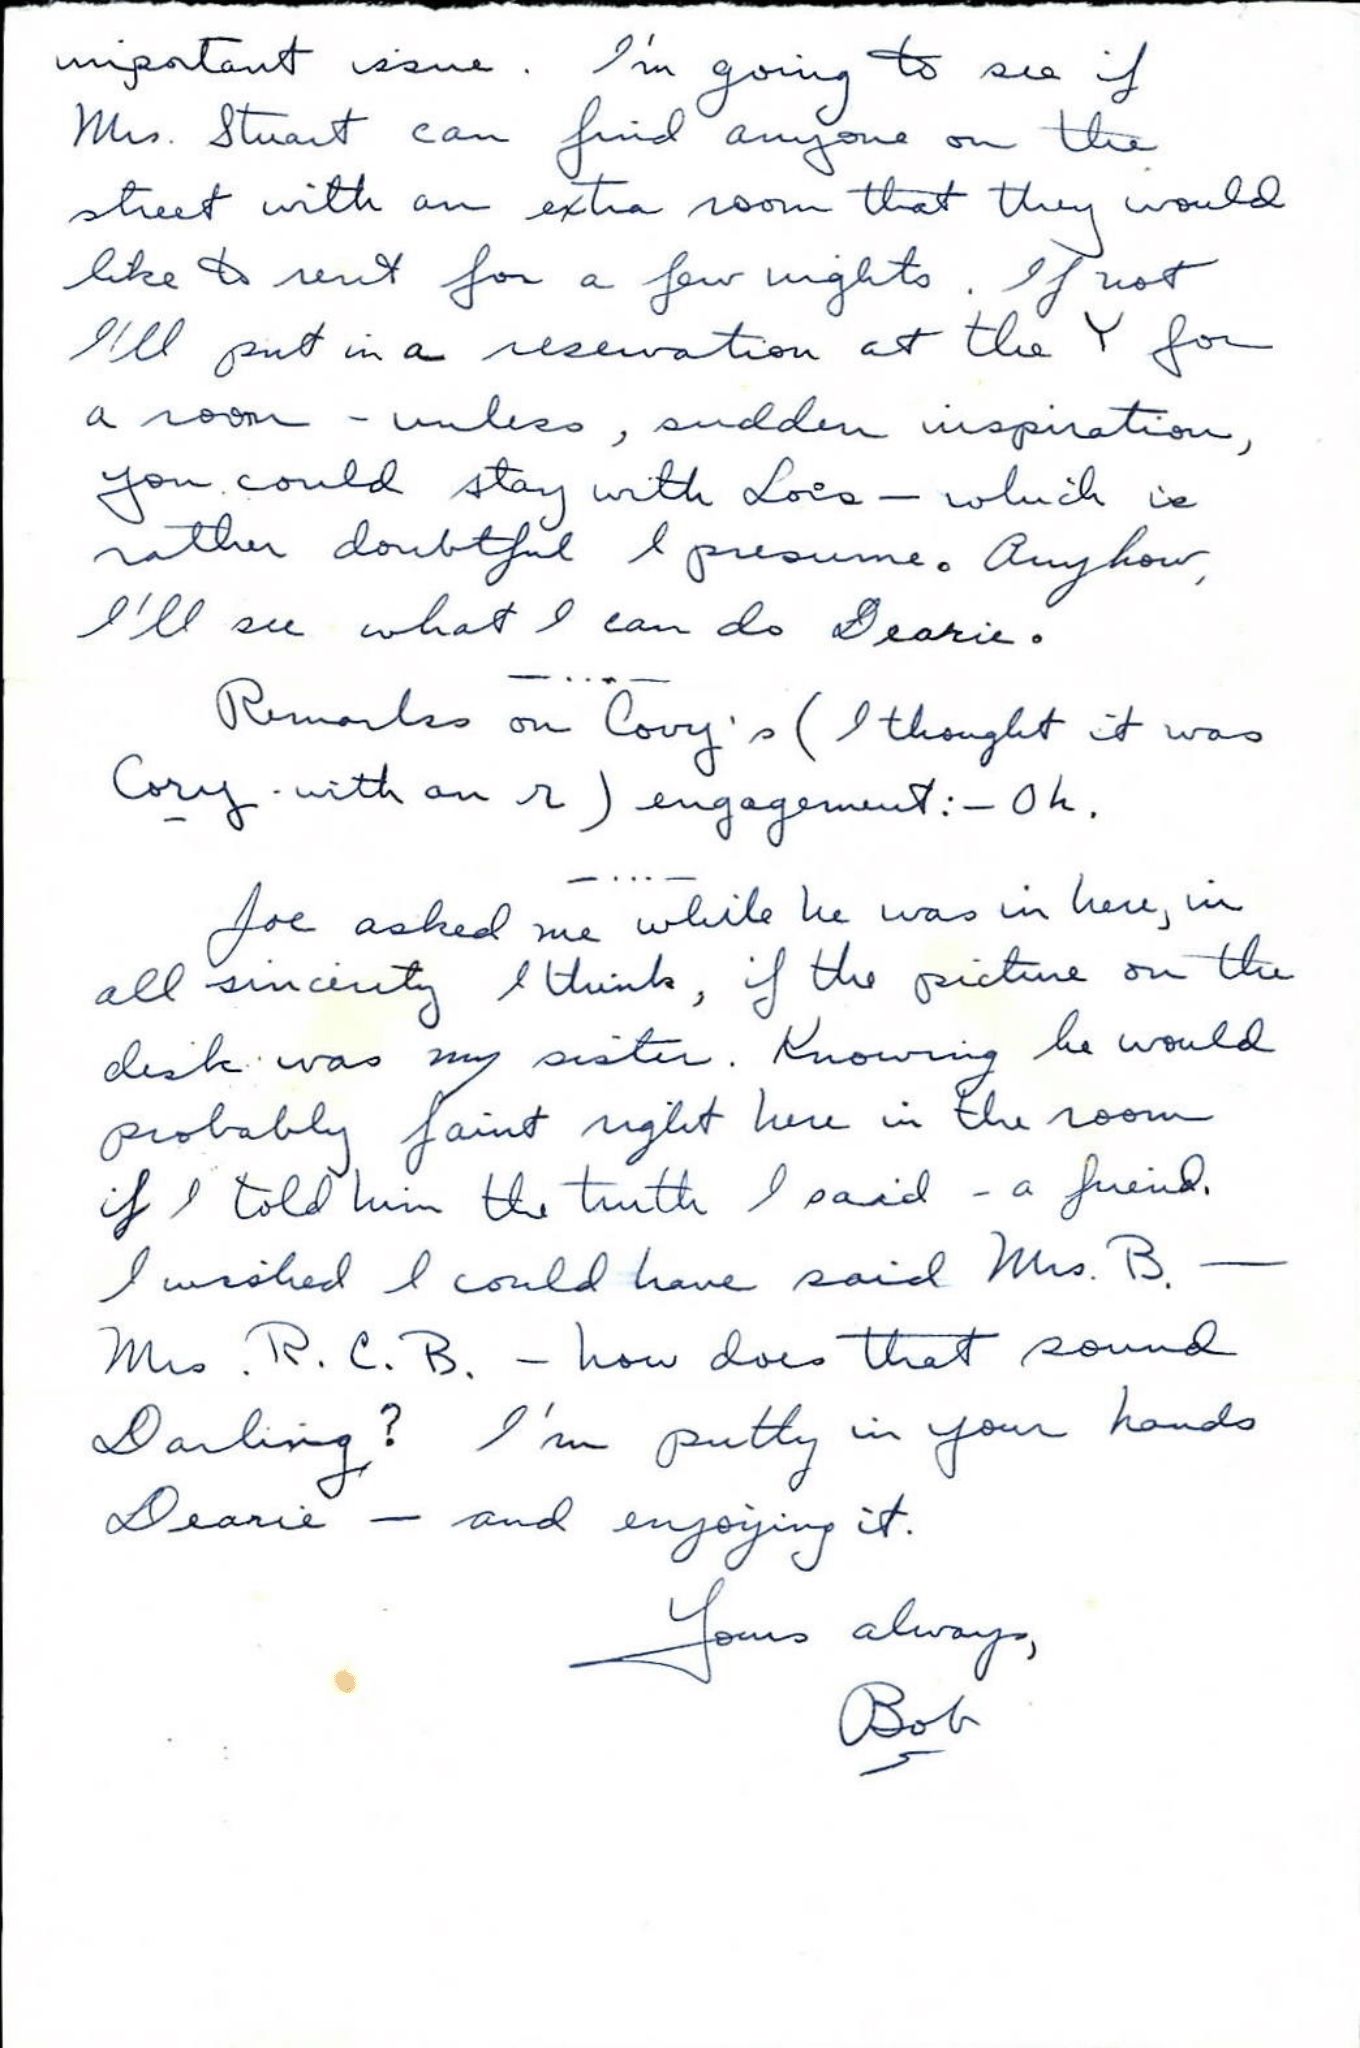 important issue. I'm going to see if
Mrs. Stuart can find anyone on the
street with an extra room that they would
like to rent for a few nights. If not
I'll put in a reservation at the Y for
a room - unless, sudden inspiration,
you could stay with Lois — which is
rather doubtful I presume. Anyhow,
I'll see what I can do Dearie.
— ... —
Remarks on Covy's (I thought it was
Cory - with an r) engagement: — Oh.
— ... —
Joe asked me while he was in here, in
all sincerity I think, if the picture on the
desk was my sister. Knowing he would
probably faint right here in the room
if I told him the truth I said - a friend.
I wished I could have said Mrs. B. —
Mrs. R. C. B. — how does that sound
Darling? I'm putty in your hands
Dearie — and enjoying it.
Yours always,
Bob